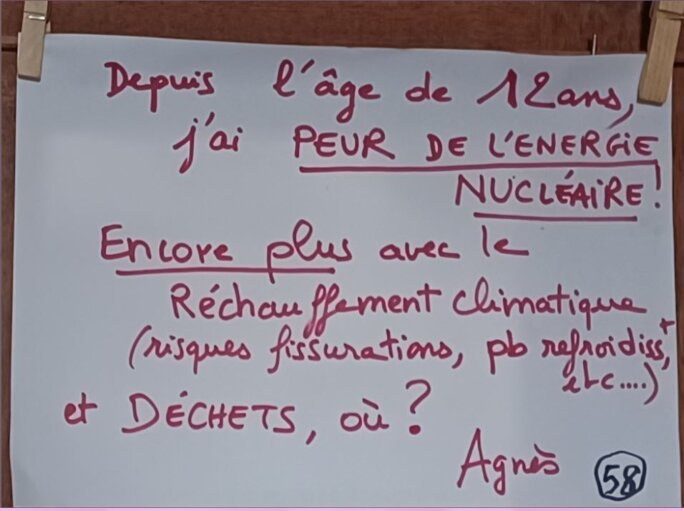 Depuis l'âge de 12 ans,
j'ai PEUR DE L'ENERGIE
NUCLÉAIRE !
Encore plus avec le
Réchauffement climatique
(risques fissurations, pb refroidisst,
etc....)
et DÉCHETS, où ?
Agnès 58